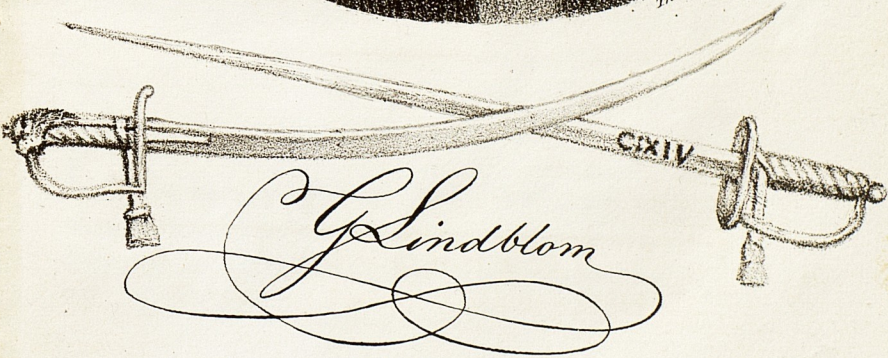 C:XIV
G Lindblom